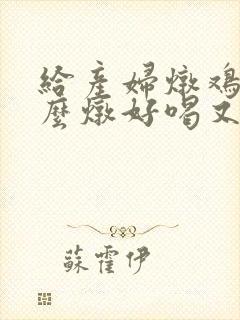 給產婦燉鸡
麼燉好喝又
蘇霍伊